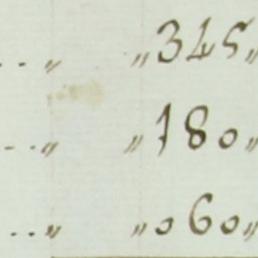 .. „ „345„
... „ „180„
... „ „060„